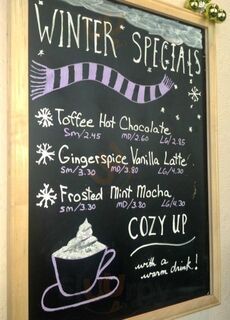 WINTER SPECIALS
Toffee Hot Chocolate
Sm/2.45 MD/2.60 LG/2.85
Gingerspice Vanilla Latte
Sm/3.30 MD/3.80 LG/4.30
Frosted Mint Mocha
Sm/3.30 MD/3.80 LG/4.30
COZY UP
with a
warm drink!